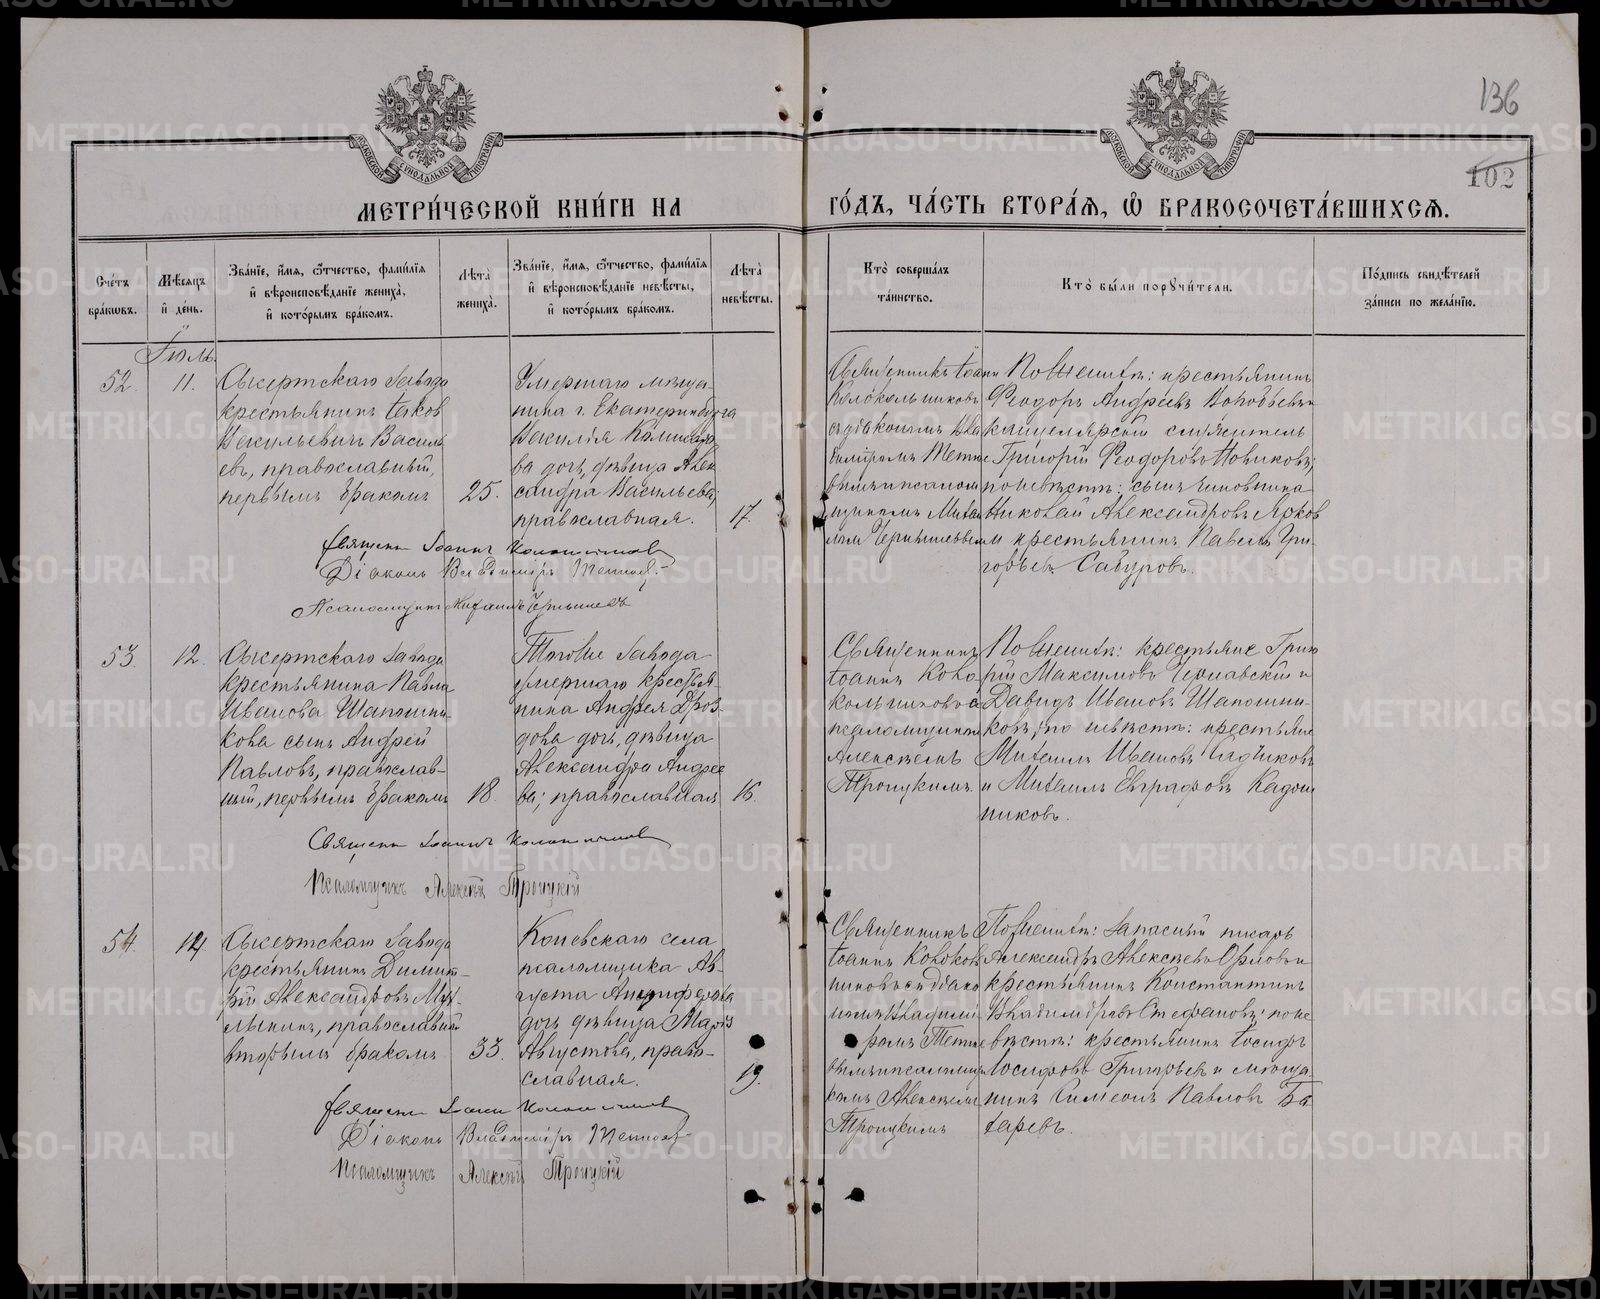 136
102
МЕТРИ́ЧЕСКОЙ КНИ́ГИ НА
ГО́ДЪ, ЧА́СТЬ ВТОРА́Ѧ, Ѽ БРАКОСОЧЕТА́ВШИХСѦ.
Сче́тъ бра́ковъ.
Мѣ́сѧцъ и҆ де́нь.
Зва́нїе, и҆́мѧ, ѻ҆́тчество, фами́лїѧ
и҆ вѣроисповѣ́данїе жениха̀,
и҆ кото́рымъ бра́комъ.
Лѣ́та̀ жениха̀.
Зва́нїе, и҆́мѧ, ѻ҆́тчество, фами́лїѧ
и҆ вѣроисповѣ́данїе невѣ́сты,
и҆ кото́рымъ бра́комъ.
Лѣ́та̀ невѣ́сты.
Кто̀ соверша́лъ
та́инство.
Кто̀ бы́ли порꙋчи́тели.
По́дпись свидѣ́телей
за́писи по жела́нїю.
Іюль.
52.
11.
Сысертскаго завода
крестьянинъ Іаковъ
Васильевичъ Василь
евъ, православный,
первымъ бракомъ
25.
Умершаго мѣща-
нина г. Екатеринбурга
Василія
ва дочь, дѣвица Алек
сандра Васильева,
православная.
17.
Священникъ Іоаннъ
Колокольниковъ
съ діакономъ Вла
диміромъ Тетне
вымъ и псалом
щикомъ Миха
иломъ Чернышевымъ
По женихѣ: крестьянинъ
Ѳеодоръ Андреевъ Воробьевъ и
канцелярскій служитель
Григорій Ѳеодоровъ Новиковъ;
по невѣстѣ: сынъ чиновника
Николай Александровъ
и крестьянинъ Павелъ Гри-
горьевъ Сабуровъ.
Священ. Іоаннъ Колокольниковъ
Діаконъ Владиміръ
Псаломщикъ Михаилъ Чернышевъ
53.
12.
Сысертскаго завода
крестьянина Павла
Иванова Шапошни-
кова сынъ Андрей
Павловъ, православ-
ный, первымъ бракомъ
18.
Того же завода
умершаго крестья-
нина Андрея Дроз-
дова дочь, дѣвица
Александра Андрее
ва; православная
16.
Священникъ
Іоаннъ Коло
кольниковъ съ
псаломщикомъ
Алексѣемъ
Троицкимъ.
По женихѣ: крестьяне Григо
рій Максимовъ Чернавскій и
Давидъ Ивановъ Шапошни-
ковъ; по невѣстѣ: крестьяне
Михаилъ Ивановъ
и Михаилъ Евграфовъ Кадош
никовъ.
Священ. Іоаннъ Колокольниковъ
Псаломщикъ Алексѣй Троицкій
54.
14
Сысертскаго завода
крестьянинъ Димит-
рій Александровъ
православный
вторымъ бракомъ
33.
Коневскаго села
псаломщика Ав-
густа
дочь дѣвица Марія
Августова, право-
славная.
19.
Священникъ
Іоаннъ Колоколь
никовъ съ діако
номъ Владимі
ромъ Тетне
вымъ и псаломщи
комъ Алексѣемъ
Троицкимъ
По женихѣ: запасный писарь
Александръ Алексѣевъ Орловъ и
крестьянинъ Константинъ
Владиміровъ Стефановъ; по не
вѣстѣ: крестьянинъ Іосифъ
Іосифовъ Григорьевъ и мѣща
нинъ Симеонъ Павловъ Ба
таревъ.
Священ. Іоаннъ Колокольниковъ
Діаконъ Владиміръ
Псаломщикъ Алексѣй Троицкій
METRIKI.GASO-URAL.RU